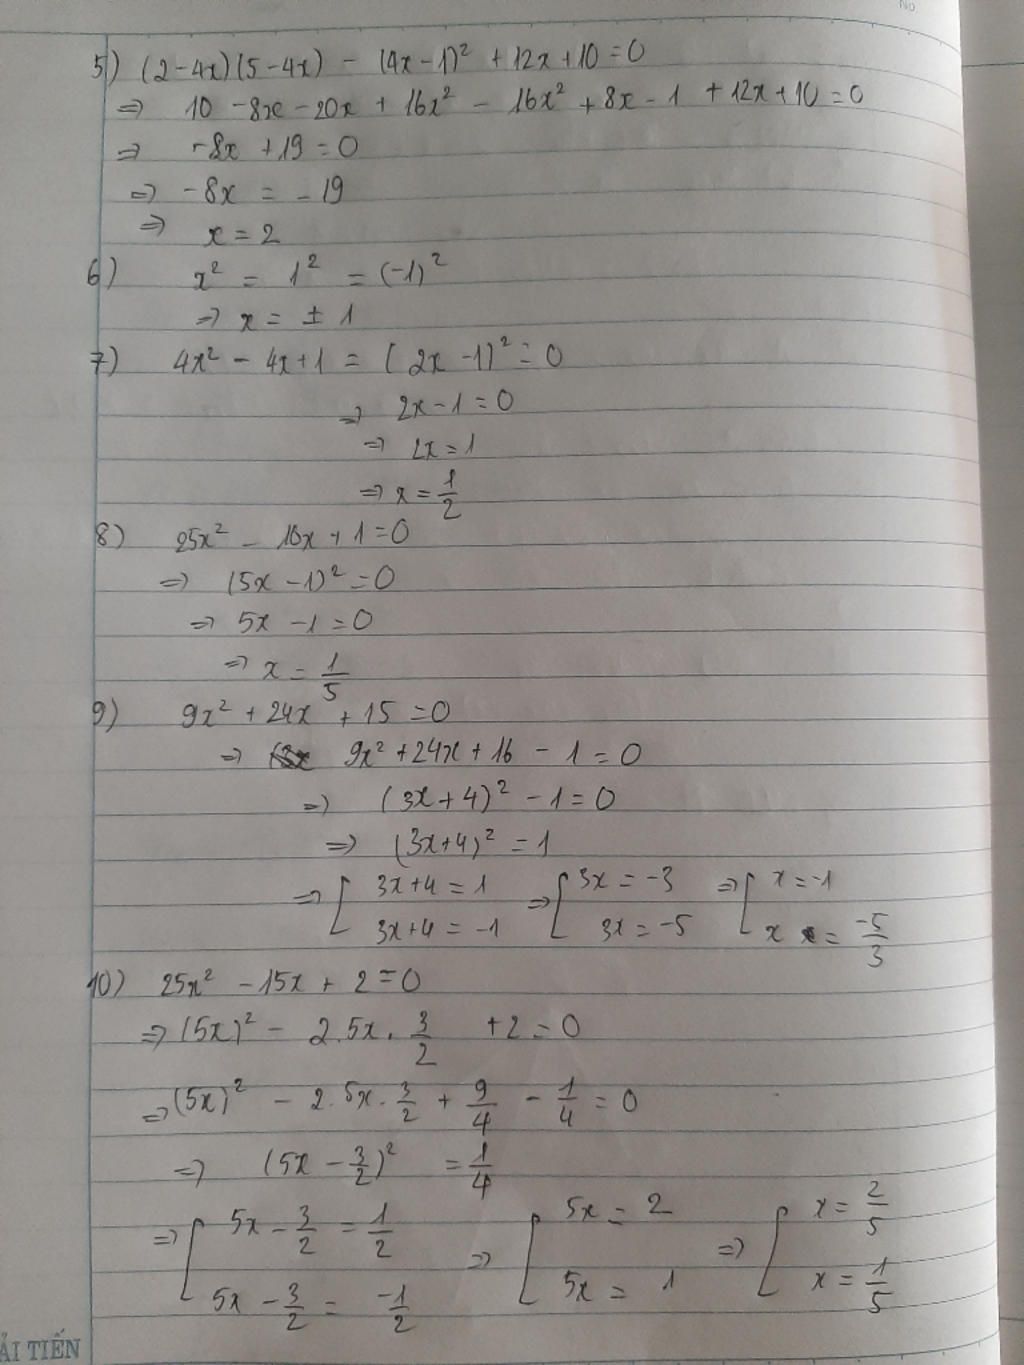 No
5) (2-4x)(5-4x) - (4x-1)² + 12x + 10 = 0
⇒ 10 - 8x - 20x + 16x² - 16x² + 8x - 1 + 12x + 10 = 0
⇒ -8x + 19 = 0
⇒ -8x = -19
⇒ x = 2
6) x² = 1² = (-1)²
⇒ x = ± 1
7) 4x² - 4x + 1 = (2x - 1)² = 0
⇒ 2x - 1 = 0
⇒ 2x = 1
⇒ x = 1/2
8) 25x² - 10x + 1 = 0
⇒ (5x - 1)² = 0
⇒ 5x - 1 = 0
⇒ x = 1/5
9) 9x² + 24x + 15 = 0
⇒ 9x² + 24x + 16 - 1 = 0
⇒ (3x + 4)² - 1 = 0
⇒ (3x+4)² = 1
⇒ [ 3x+4 = 1 ⇒ [ 3x = -3 ⇒ [ x = -1
3x+4 = -1 3x = -5 x = -5/3
10) 25x² - 15x + 2 = 0
⇒ (5x)² - 2.5x.3/2 + 2 = 0
⇒ (5x)² - 2.5x.3/2 + 9/4 - 1/4 = 0
⇒ (5x - 3/2)² = 1/4
⇒ [ 5x - 3/2 = 1/2 ⇒ [ 5x = 2 ⇒ [ x = 2/5
5x - 3/2 = -1/2 5x = 1 x = 1/5
ẢI TIẾN